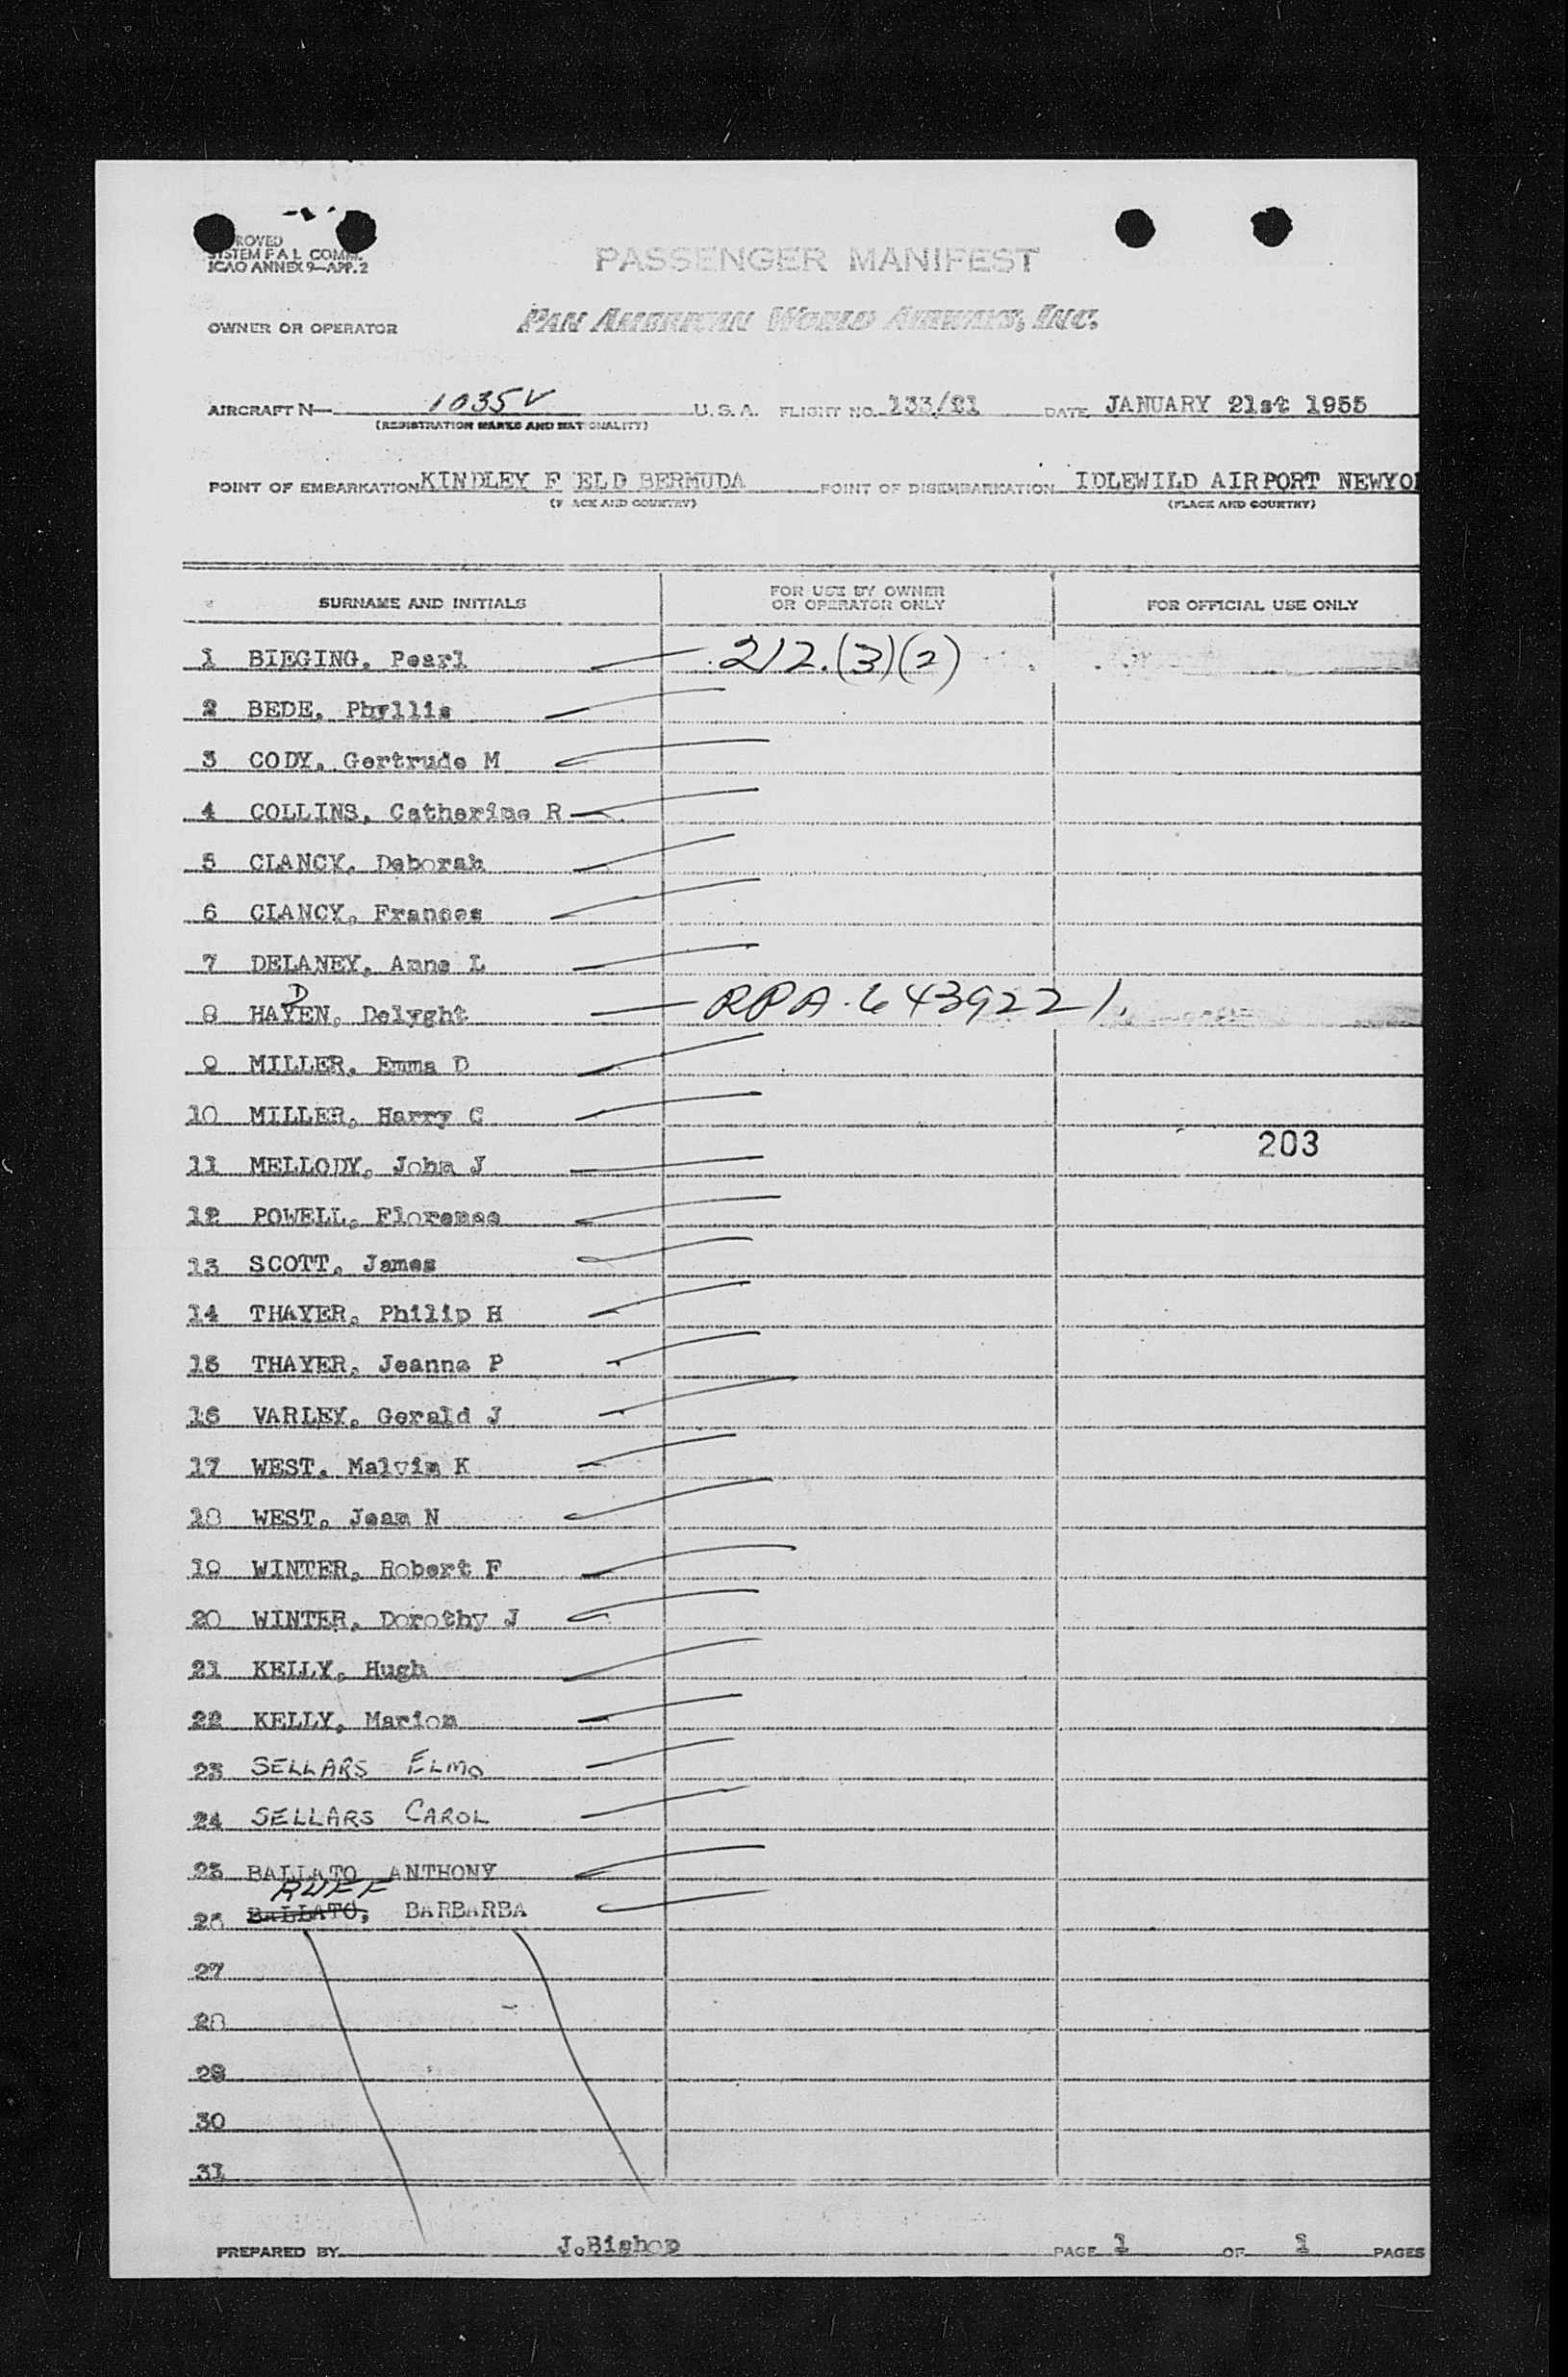 ROVED
SYSTEM F A L COMM.
ICAO ANNEX 9—APP. 2
PASSENGER MANIFEST
OWNER OR OPERATOR PAN AMERICAN WORLD AIRWAYS, INC.
AIRCRAFT N— 1035V U. S. A. FLIGHT NO. 133/21 DATE JANUARY 21st 1955
(REGISTRATION MARKS AND NATIONALITY)
POINT OF EMBARKATION KINDLEY F ELD BERMUDA POINT OF DISEMBARKATION IDLEWILD AIRPORT NEWYO
(P ACE AND COUNTRY) (PLACE AND COUNTRY)
SURNAME AND INITIALS FOR USE BY OWNER OR OPERATOR ONLY FOR OFFICIAL USE ONLY
1 BIEGING, Pearl 212.(3)(2)
2 BEDE, Phyllis
3 CODY, Gertrude M
4 COLLINS, Catherine R
5 CLANCY, Deborah
6 CLANCY, Frances
7 DELANEY, Anne L
D
8 HAVEN, Delyght RPA. 6439221.
9 MILLER, Emma D
10 MILLER, Harry C
203
11 MELLODY, John J
12 POWELL, Florence
13 SCOTT, James
14 THAYER, Philip H
15 THAYER, Jeanne P
16 VARLEY, Gerald J
17 WEST, Malvin K
18 WEST, Jean N
19 WINTER, Robert F
20 WINTER, Dorothy J
21 KELLY, Hugh
22 KELLY, Marion
23 SELLARS ELMO
24 SELLARS CAROL
25 BALLATO ANTHONY
RUFF
26 BALLATO, BARBARBA
27
28
29
30
31
PREPARED BY J.Bishop PAGE 1 OF 1 PAGES